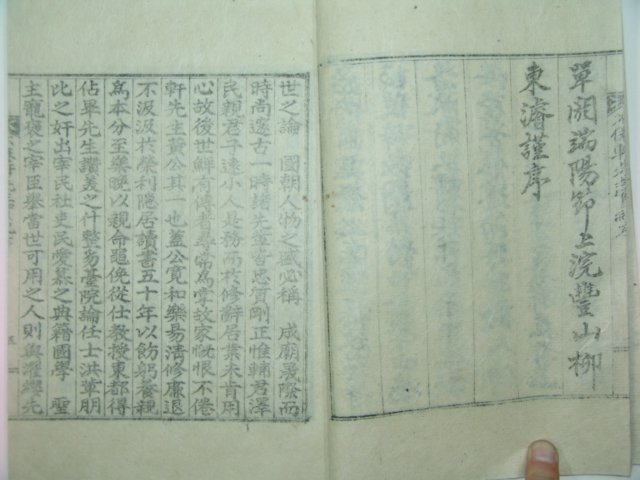 單閼端陽節上浣豐山柳
東濬謹序
世之論　國朝人物之盛必稱　成廟署際而
時尚邃古一時諸先輩皆忠質剛正惟輔君澤
民親君子遠小人是務而於修辭居業未肯用
心故後世鮮有傳者尋常為掌故家慨恨不倦
軒先生黃公其一也蓋公寬和樂易清修廉退
不汲汲於榮利隱居讀書五十年以飭躬養親
為本分至樂晚以親命黽俛從仕教授東都得
佔畢先生讚美之什整易臺院論任士洪葉朋
比之奸出宰民社吏民愛慕之典籍國學　聖
主寵褒之宰臣舉當世可用之人則與濯纓先